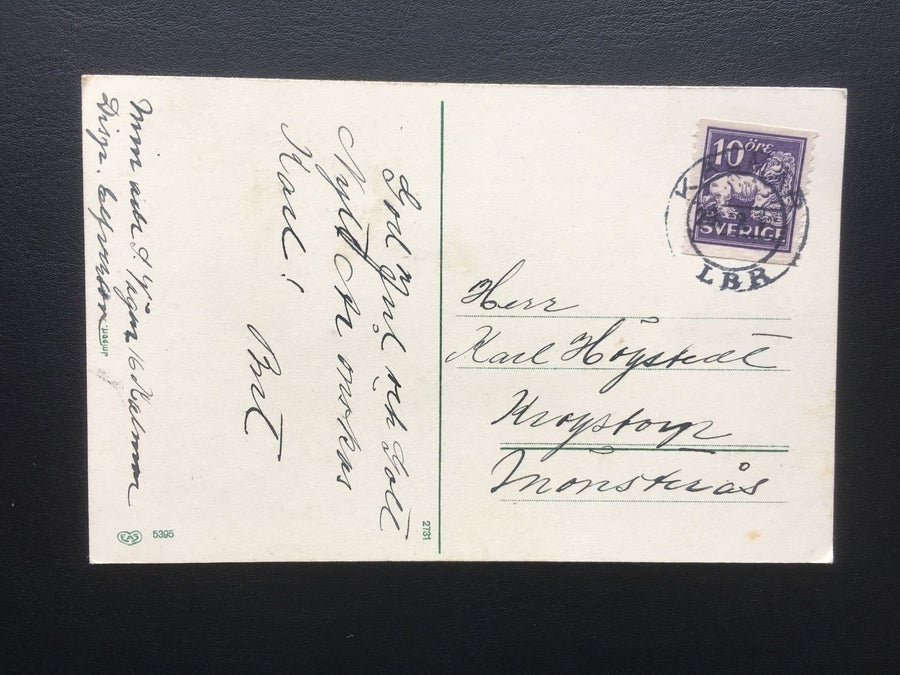 God Jul och Gott
Nytt År önskas
Karl!
Brt
Min adr S. Vägen 16 Kalmar
Disp.
IMPORT.
EAS 5395
2731
10 ÖRE
SVERIGE
LBR
Herr
Karl Högstedt
Krogstorp
Mönsterås